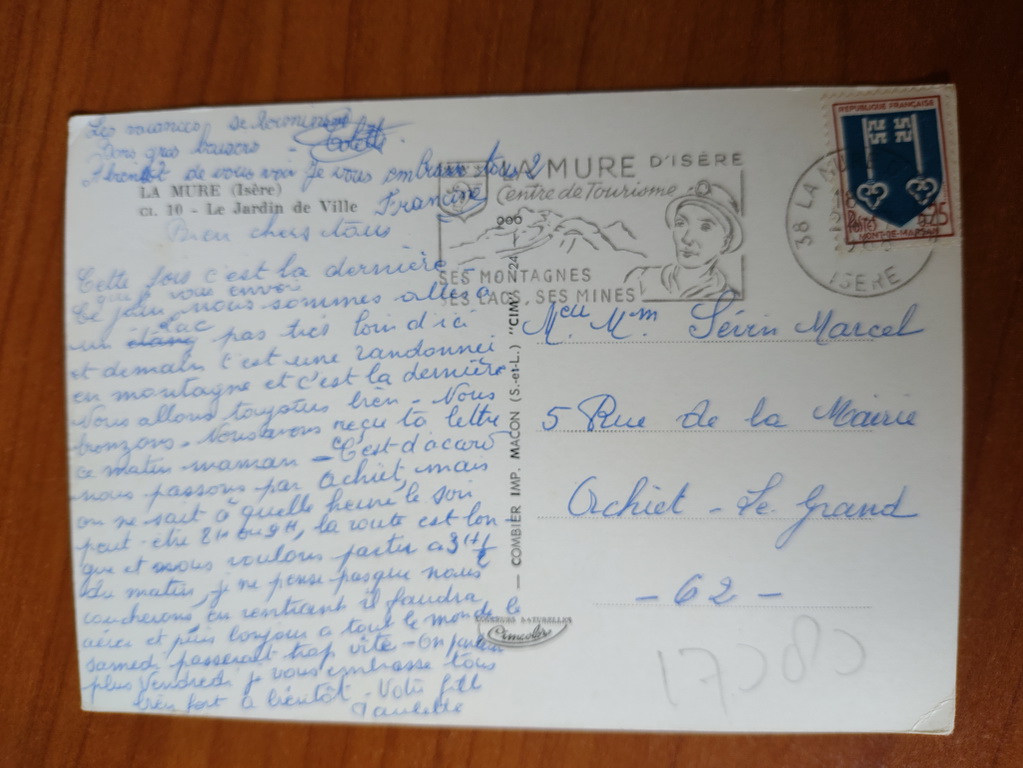 Les vacances se terminent
Bons gros baisers - Colette
A bientôt de vous voir je vous embrasse tous 2
Francine
LA MURE (Isère)
Cl. 10 - Le Jardin de Ville
Bien chers tous
Cette fois c'est la dernière -
que vous envoie
Ce jour, nous sommes allés à
un étang Lac pas très loin d'ici
et demain c'est une randonnée
en montagne et c'est la dernière
Nous allons toujours bien - Nous
bronzons - Nous avons reçu ta lettre
ce matin maman - C'est d'accord
nous passons par Achiet, mais
on ne sait à quelle heure le soir
peut-être 8H ou 9H, la route est lon
gue et nous voulons partir à 3H1/2
du matin, je ne pense pas que nous
coucherons, en rentrant il faudra
aérer et puis bonjour à tout le monde le
samedi passerait trop vite - On
plus Vendredi je vous embrasse tous
bien fort à bientôt - Votre fille
Paulette
— COMBIER IMP. MACON (S.-et-L.) "CIM"
COULEURS NATURELLES
Cimcolor
LA MURE D'ISÈRE
Centre de Tourisme
SES MONTAGNES
SES LACS, SES MINES
38 LA MURE
ISERE
REPUBLIQUE FRANÇAISE
Postes 0,25
MONT-DE-MARSAN
Mr. Mm Sévin Marcel
5 Rue de la Mairie
Achiet - Le Grand
- 62 -